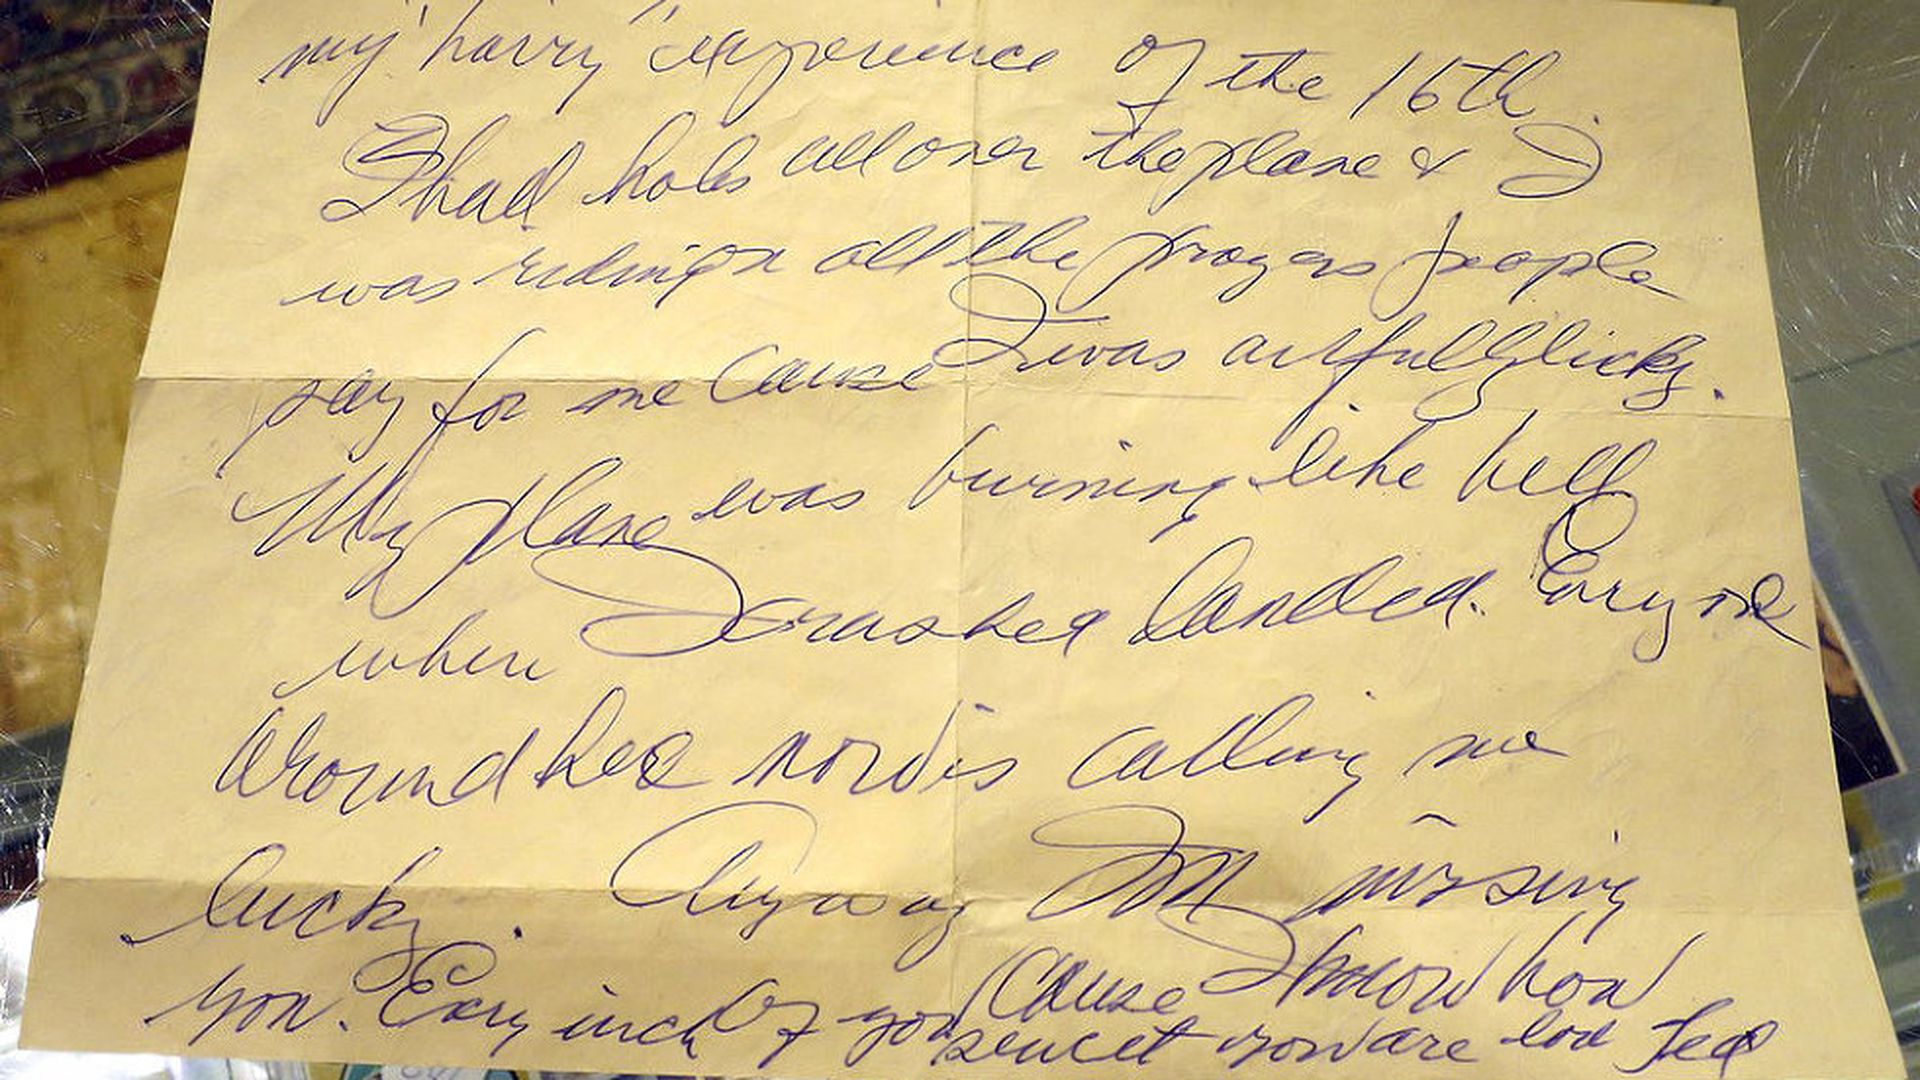 my "hairy" experience of the 16th.
I had holes all over the plane & I
was riding on all the prayers people
say for me cause I was awfully lucky.
My plane was burning like hell
when I crashed landed. Every one
around here now is calling me
lucky. Anyway I'm missing
you. Every inch of you cause I know how
sweet you are Ted